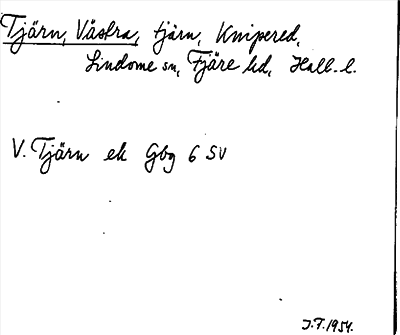 Tjärn, Västra, tjärn, Knipered,
Lindome sn, Fjäre hd, Hall. l.
V. Tjärn ek Gbg 6 SV
J.F. 1954.